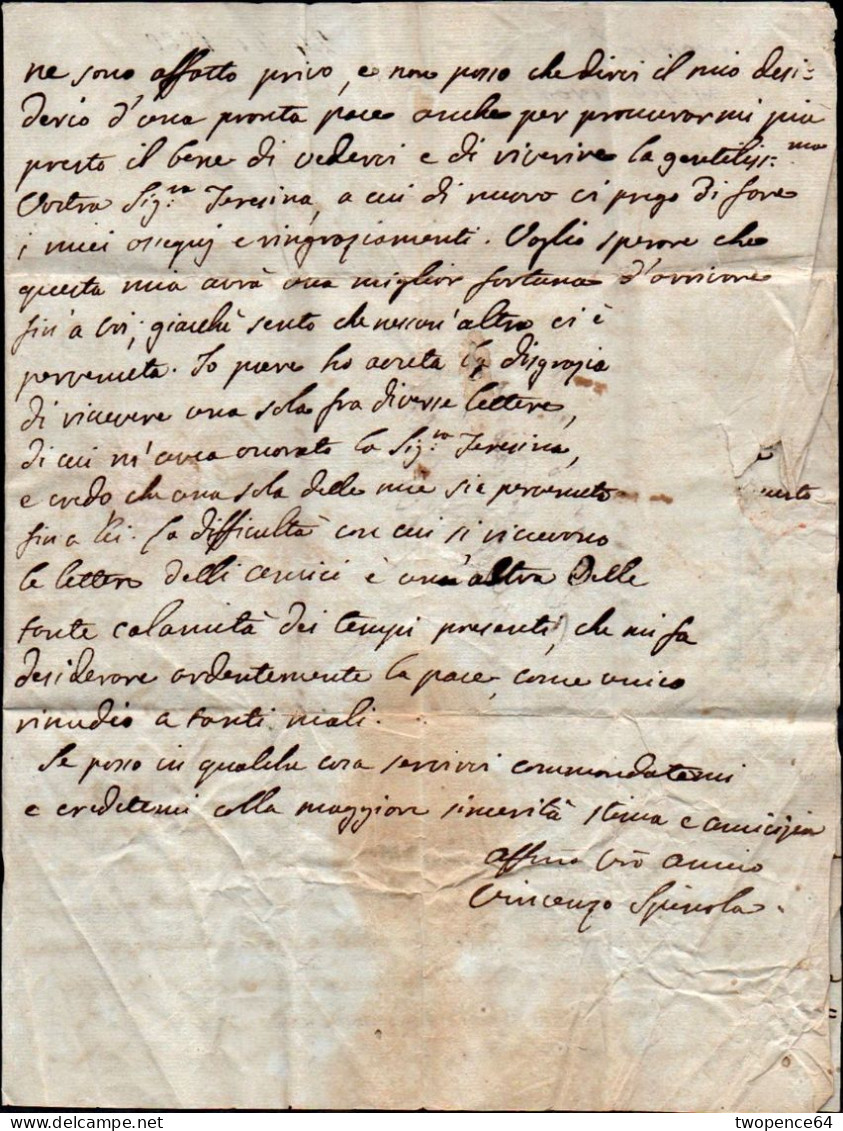 ne sono affatto privo, e non posso che dirvi il mio desi-
derio d'una pronta pace anche per procurarmi più
presto il bene di vedervi e di riverire la gentiliss:ma
Vostra Sig:ra Teresina, a cui di nuovo vi prego di fare
i miei ossequj e ringraziamenti. Voglio sperare che
questa mia avrà una miglior fortuna d'arrivare
fin'a Voi; giacchè sento che nessun'altra vi è
pervenuta. Io pure ho avuta la disgrazia
di ricevere una sola fra diverse lettere,
di cui m'avea onorato la Sig:ra Teresina,
e credo che una sola delle mie sia pervenuta
fin a Lei. La difficoltà con cui si ricevono
le lettere delli amici è una altra delle
tante calamità dei tempi presenti, che mi fa
desiderare ardentemente la pace, come unico
rimedio a tanti mali.
Se posso in qualche cosa servirvi commandatemi
e credetemi colla maggiore sincerità stima e amicizia
affmo Vro amico
Vincenzo Spinola.
delcampe.net
twopence64